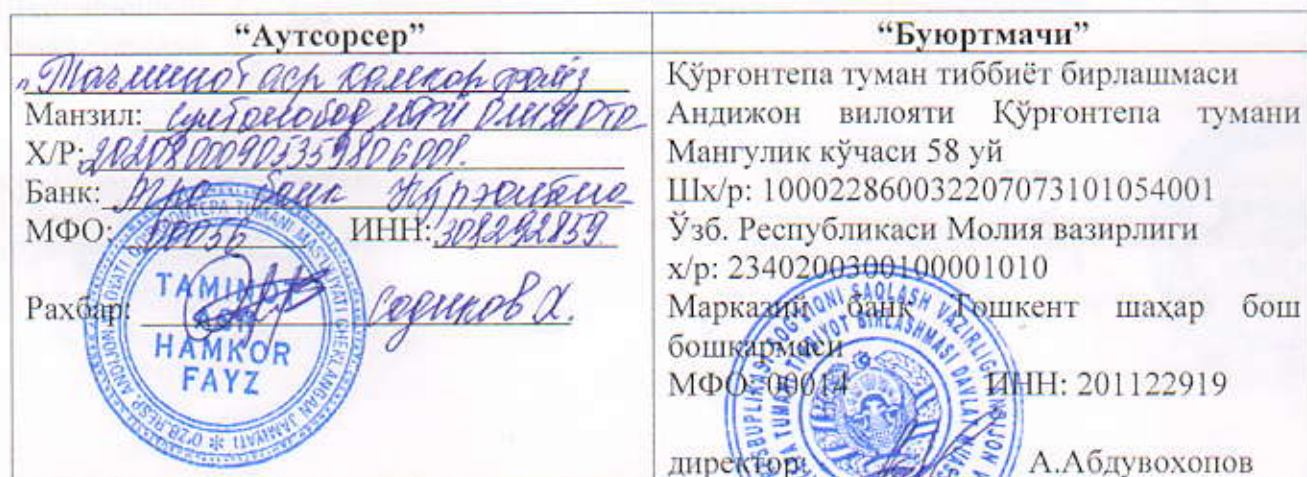 “Аутсорсер”
„Таъминот аср хамкор файз
Манзил: Султонобод МФЙ Олимота
Х/Р: 20208000905359806001.
Банк: Агро банк Кўрғонтепа
МФО: 00056 ИНН: 309292859
Рахбар: Содиков Х.
TAMINOT
ASR
HAMKOR
FAYZ
“Буюртмачи”
Қўрғонтепа туман тиббиёт бирлашмаси
Андижон вилояти Қўрғонтепа тумани
Мангулик кўчаси 58 уй
Шх/р: 100022860032207073101054001
Ўзб. Республикаси Молия вазирлиги
х/р: 23402000300100001010
Марказий банк Тошкент шаҳар бош
бошкармаси
МФО: 00014 ИНН: 201122919
директор: А.Абдувохопов